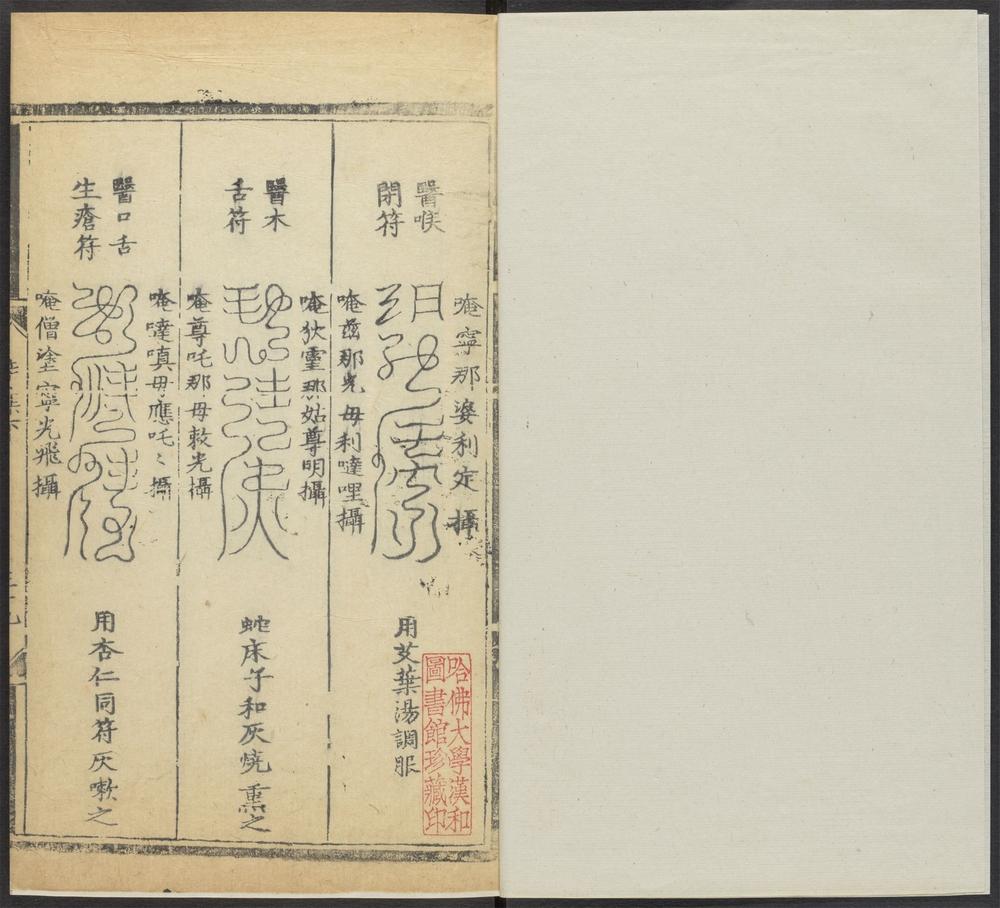 醫喉
閉符
唵寧那婆利定攝
唵茲那光毋利噠哩攝
用艾葉湯調服
醫木
舌符
唵狄靈那姑尊明攝
唵尊吒那毋敕光攝
蛇床子和灰燒熏之
醫口舌
生瘡符
唵噠嗔毋應吒〻攝
唵僧塗寧光飛攝
用杏仁同符灰嗽之
哈佛大學漢和
圖書館珍藏印